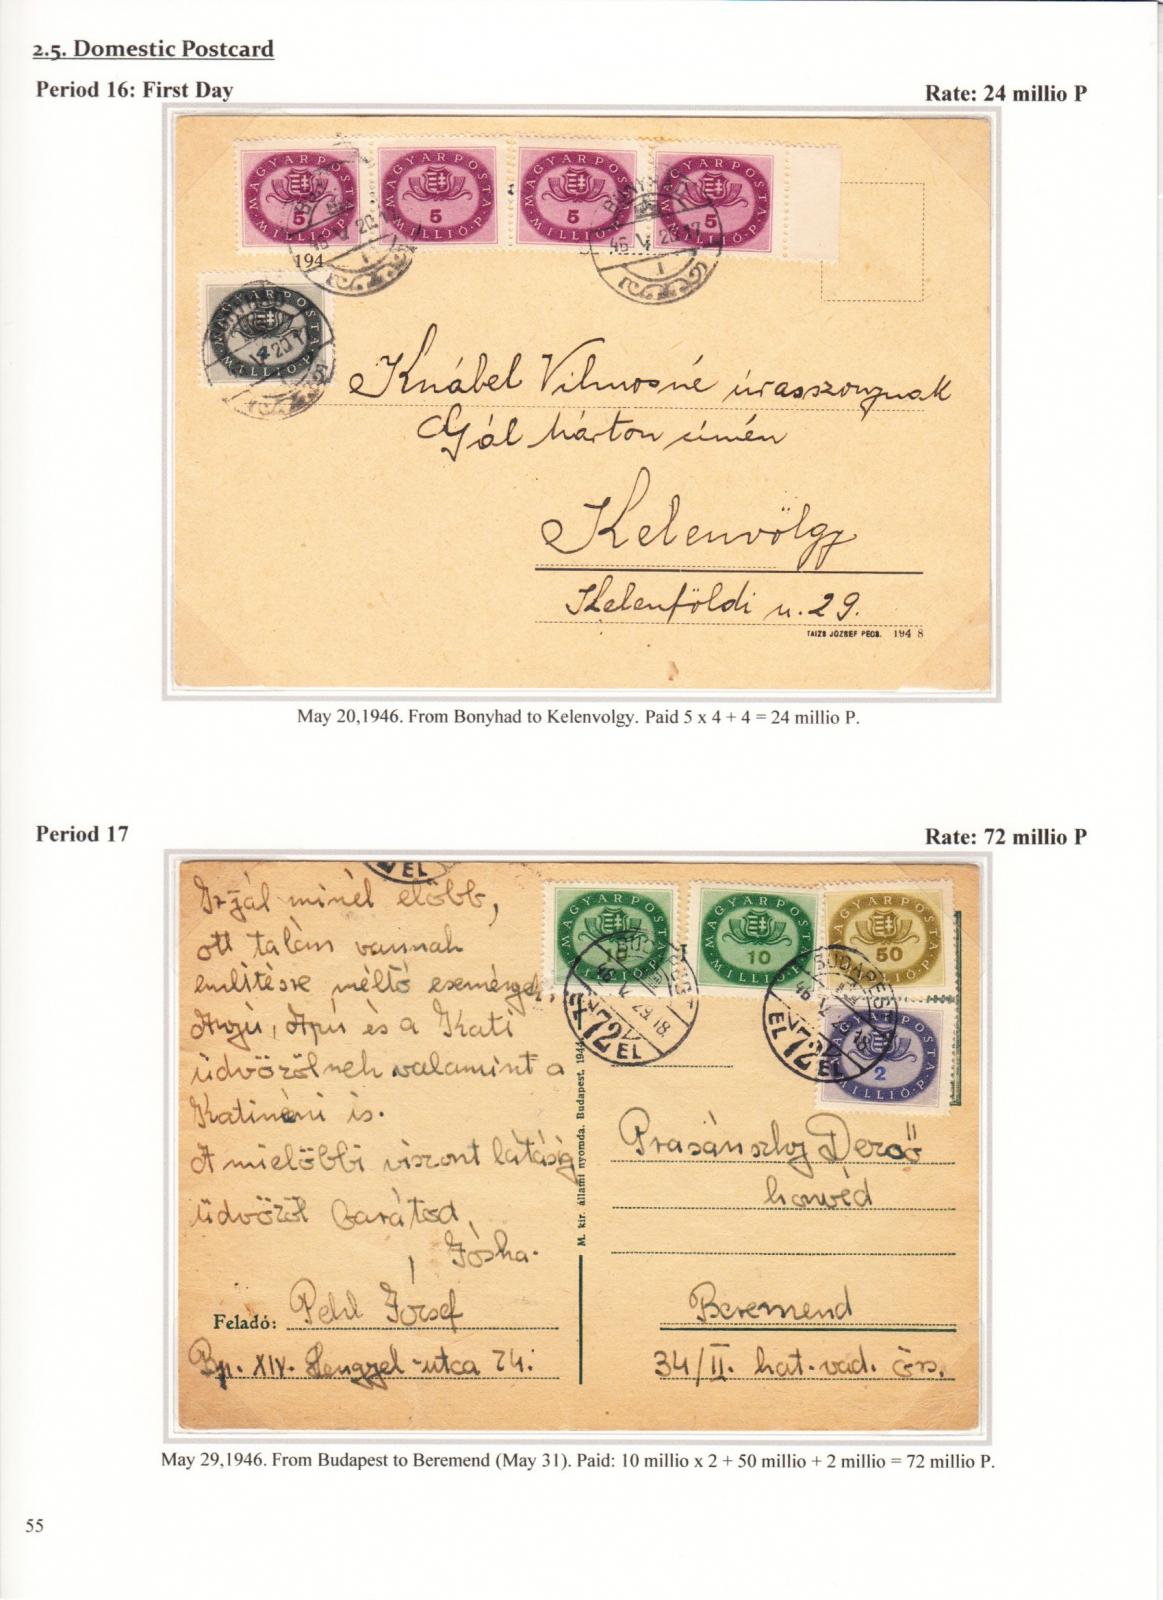 2.5. Domestic Postcard
Period 16: First Day
Rate: 24 millio P
MAGYAR POSTA
5
MILLIÓ·P
MAGYAR POSTA
5
MILLIÓ·P
MAGYAR POSTA
5
MILLIÓ·P
MAGYAR POSTA
5
MILLIÓ·P
46 V 20 17
194
MAGYAR POSTA
4
MILLIÓ·P
Knábel Vilmosné úrasszonynak
Gál Márton címén
Kelenvölgy
Kelenföldi u. 29.
TAIZS JÓZSEF PÉCS. 194 8
May 20,1946. From Bonyhad to Kelenvolgy. Paid 5 x 4 + 4 = 24 millio P.
Period 17
Rate: 72 millio P
EL
minél előbb,
ott talán vannak
említésre méltó
Anyu, Apu és a Kati
üdvözölnek valamint a
Katinéni is.
A mielőbbi viszont látásig
üdvözöl barátod,
Jóska.
Feladó: Pehl József
Bp. XIV. Lengyel-utca 24.
M. kir. állami nyomda. Budapest. 1944.
MAGYAR POSTA
10
MILLIÓ·P
MAGYAR POSTA
10
MILLIÓ·P
MAGYAR POSTA
50
MILLIÓ·P
MAGYAR POSTA
2
MILLIÓ·P
BUDAPEST
46 V 29 18
72 EL
EL 72 EL
Dezső
honvéd
Beremend
34/II. hat. vad. őrs.
May 29,1946. From Budapest to Beremend (May 31). Paid: 10 millio x 2 + 50 millio + 2 millio = 72 millio P.
55